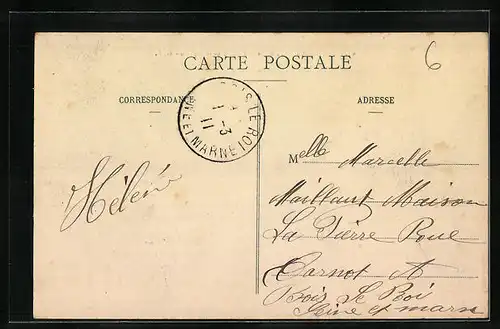 CARTE POSTALE
6
CORRESPONDANCE
ADRESSE
BOIS-LE-ROI
1 -3
11
SEINE-ET-MARNE
Hélène
Melle Marcelle
Maillant Maison
La Pierre Roue
Carnot A
Bois Le Roi
Seine et marne